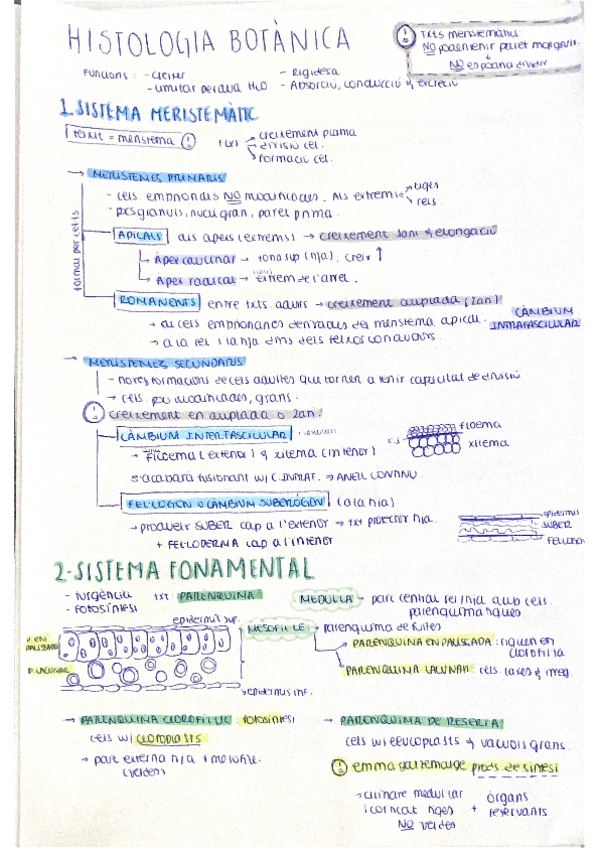 HISTOLOGIA BOTÀNICA
! txts meristemàtics
NO poden tenir paret
NO es podria dividir
Funcions: - créixer - Rigidesa
- limitar pèrdua H2O - Absorció, conducció i excreció
1. SISTEMA MERISTEMÀTIC
teixit = meristema ! creixement planta
divisió cel.
formació cel.
→ MERISTEMES PRIMARIS
- cels embrionàries NO modificades. Als extrems tiges
rels
- pocs grànuls, nucli gran, paret prima.
format per cells
APICALS als àpexs (extrems) → creixement 1ari i elongació
Àpex caulinar → zona sup (tija). creix ↑
Àpex radical → extrem de l'arrel.
ROMANENTS entre txts adults → creixement amplada (2ari)
CÀMBIUM INTRAFASCICULAR
→ cels embrionàries derivades del meristema apical.
→ a la rel i la tija dins dels feixos conductors.
→ MERISTEMES SECUNDARIS
- noves formacions de cels adultes que tornen a tenir capacitat de divisió
→ cels poc modificades, grans.
! creixement en amplada o 2ari!
CÀMBIUM INTERFASCICULAR
floema
xilema
→ floema (exterior) i xilema (interior)
s'acabarà fusionant w/ C. INTRAF. → ANELL CONTINU
FEL·LOGEN O CÀMBIUM SUBERÒGEN (a la tija)
→ produeix SÚBER cap a l'exterior → txt protector tija.
+ FEL·LODERMA cap a l'interior
epidermis
SUBER
FEL·LOGEN
2- SISTEMA FONAMENTAL
- turgència txt PARENQUIMA
- fotosíntesi
MEDUL·LA → part central rel/tija amb cels.
parenquimàtiques
epidermis sup.
P. EN PALISSADA
P. LACUNAR
epidermis inf.
MESOFIL·LE → parènquima de fulles
→ PARENQUIMA EN PALISSADA: riquen en
clorofil·la
→ PARENQUIMA LACUNAR: cels. laxes i irreg.
→ PARENQUIMA CLOROFIL·LIC fotosíntesi
cels w/ CLOROPLASTS
→ part externa tija i mesofil·le.
(verdes)
→ PARENQUIMA DE RESERVA
cels w/ leucoplasts i vacuols grans.
! emmagatzematge prods. de síntesi
→ cilindre medul·lar òrgans
i còrtex tiges + reservants
NO verdes